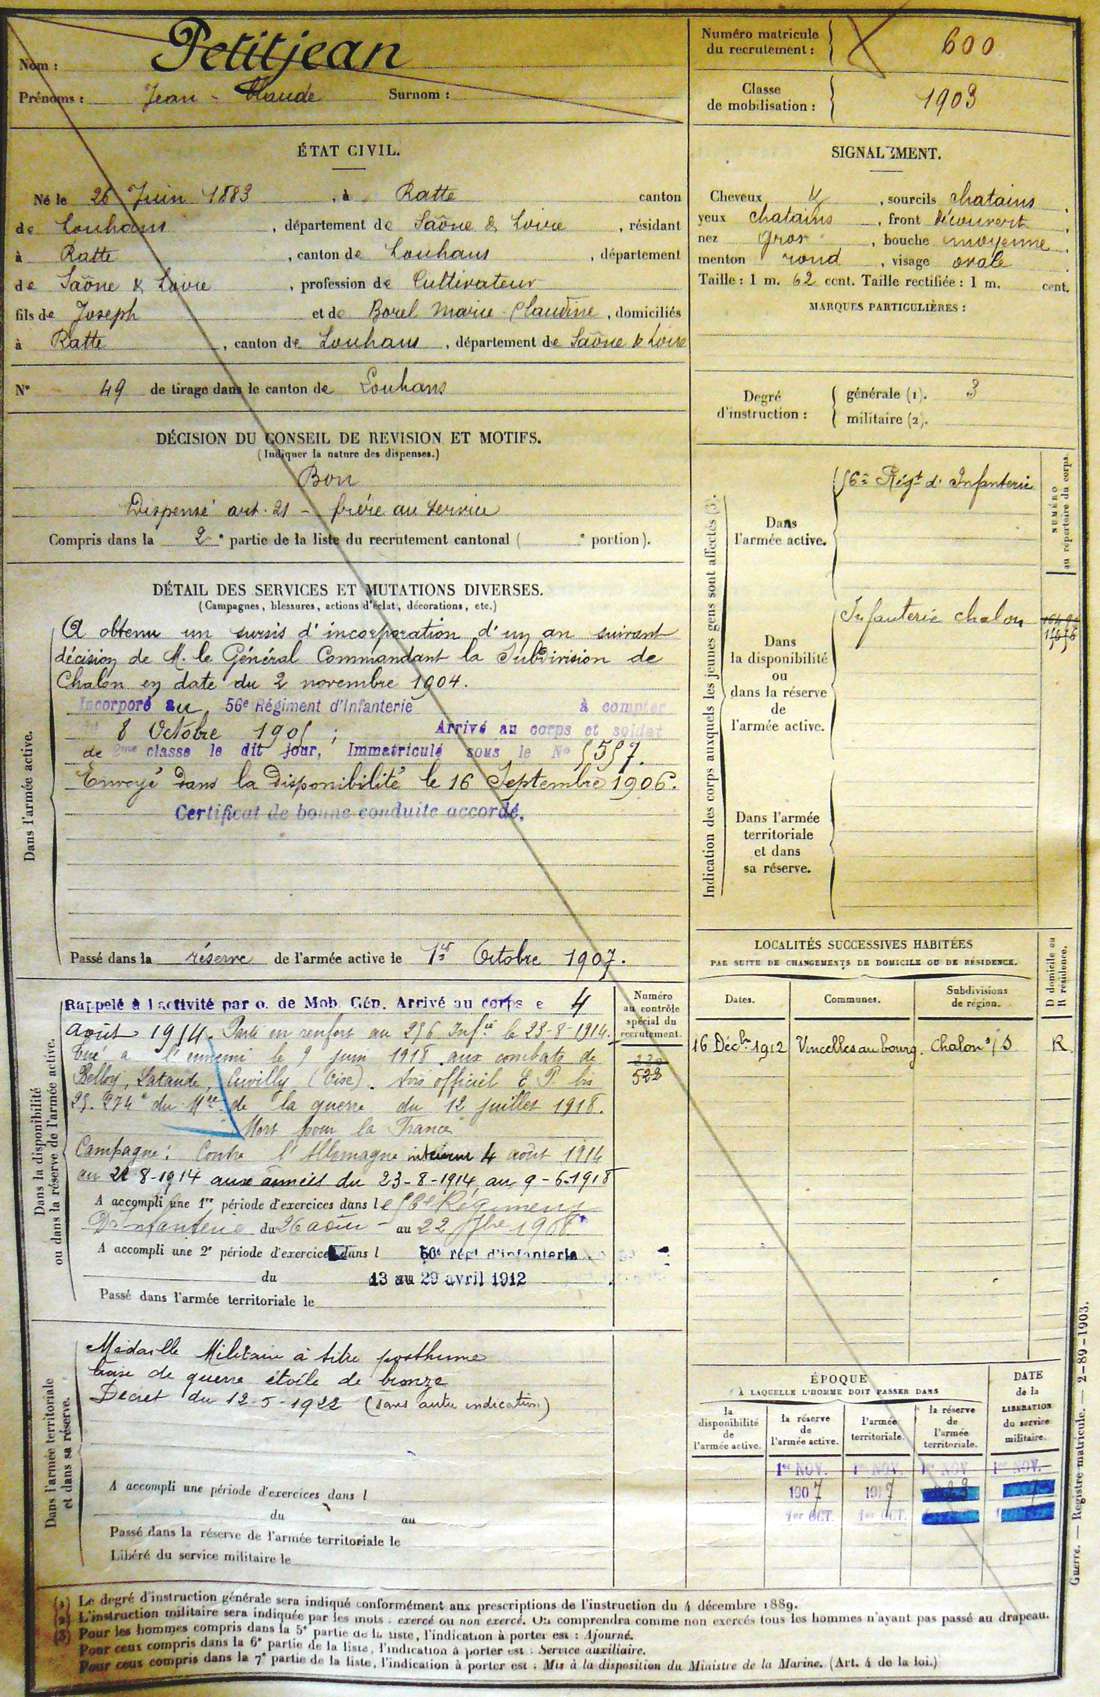 Nom : Petitjean
Prénoms : Jean-Claude Surnom :
Numéro matricule du recrutement : 600
Classe de mobilisation : 1903
ÉTAT CIVIL.
Né le 26 Juin 1883, à Ratte canton
de Louhans, département de Saône & Loire, résidant
à Ratte, canton de Louhans, département
de Saône & Loire, profession de Cultivateur
fils de Joseph et de Borel Marie-Claudine, domiciliés
à Ratte, canton de Louhans, département de Saône & Loire
N° 49 de tirage dans le canton de Louhans
SIGNALEMENT.
Cheveux, sourcils chatains,
yeux chatains, front découvert,
nez gros, bouche moyenne,
menton rond, visage ovale
Taille : 1 m. 62 cent. Taille rectifiée : 1 m. cent.
MARQUES PARTICULIÈRES :
Degré d'instruction : générale (1). 3
militaire (2).
DÉCISION DU CONSEIL DE REVISION ET MOTIFS.
(Indiquer la nature des dispenses.)
Bon
Dispensé art. 21 - frère au service
Compris dans la 2e partie de la liste du recrutement cantonal ( e portion).
DÉTAIL DES SERVICES ET MUTATIONS DIVERSES.
(Campagnes, blessures, actions d'éclat, décorations, etc.)
Dans l'armée active.
A obtenu un sursis d'incorporation d'un an suivant
décision de M. le Général Commandant la Subdivision de
Chalon en date du 2 novembre 1904.
Incorporé au 56e Régiment d'Infanterie à compter
8 Octobre 1905 ; Arrivé au corps et soldat
de 2me classe le dit jour, Immatriculé sous le N° 5557.
Envoyé dans la disponibilité le 16 Septembre 1906.
Certificat de bonne conduite accordé.
Passé dans la réserve de l'armée active le 1er Octobre 1907.
Indication des corps auxquels les jeunes gens sont affectés (3).
NUMÉRO au répertoire du corps.
Dans l'armée active.
56e Régt d'Infanterie
Dans la disponibilité ou dans la réserve de l'armée active.
Infanterie Chalon
Dans l'armée territoriale et dans sa réserve.
LOCALITÉS SUCCESSIVES HABITÉES
PAR SUITE DE CHANGEMENTS DE DOMICILE OU DE RÉSIDENCE.
D domicile ou R résidence.
Dates. Communes. Subdivisions de région.
16 Décbre 1912 Vincelles au bourg. Chalon s/S R
Dans la disponibilité
ou dans la réserve de l'armée active.
Numéro
au contrôle
spécial du
recrutement.
522
Rappelé à l'activité par o. de Mob. Gén. Arrivé au corps le 4
août 1914. Parti en renfort au 256 Infie le 23-8-1914.
Tué à l'ennemi le 9 juin 1918 aux combats de
Belloy, Lataule, Cuvilly (Oise). Avis officiel E. P. bis
du Mre de la guerre du 12 juillet 1918.
"Mort pour la France"
Campagne : Contre l'Allemagne intérieur 4 août 1914
au 22 8-1914 aux armées du 23-8-1914 au 9-6-1918
A accompli une 1re période d'exercices dans le 56e Régiment
D'Infanterie du 26 août au 22 7bre 1908
A accompli une 2e période d'exercices dans l 56e régt d'infanterie
du 13 au 29 avril 1912
Passé dans l'armée territoriale le
Dans l'armée territoriale
et dans sa réserve.
Médaille Militaire à titre posthume
Croix de guerre étoile de bronze
Décret du 12-5-1922 (sans autre indication)
A accompli une période d'exercices dans l
du au
Passé dans la réserve de l'armée territoriale le
Libéré du service militaire le
ÉPOQUE
À LAQUELLE L'HOMME DOIT PASSER DANS
la disponibilité de l'armée active.
la réserve de l'armée active.
l'armée territoriale.
la réserve de l'armée territoriale.
DATE de la LIBÉRATION du service militaire.
1er NOV. 1er NOV. 1er NOV. 1er NOV.
1907 1917
1er OCT. 1er OCT.
Guerre. — Registre matricule. — 2-89-1903.
(1) Le degré d'instruction générale sera indiqué conformément aux prescriptions de l'instruction du 4 décembre 1889.
(2) L'instruction militaire sera indiquée par les mots : exercé ou non exercé. On comprendra comme non exercés tous les hommes n'ayant pas passé au drapeau.
(3) Pour les hommes compris dans la 5e partie de la liste, l'indication à porter est : Ajourné.
Pour ceux compris dans la 6e partie de la liste, l'indication à porter est : Service auxiliaire.
Pour ceux compris dans la 7e partie de la liste, l'indication à porter est : Mis à la disposition du Ministre de la Marine. (Art. 4 de la loi.)